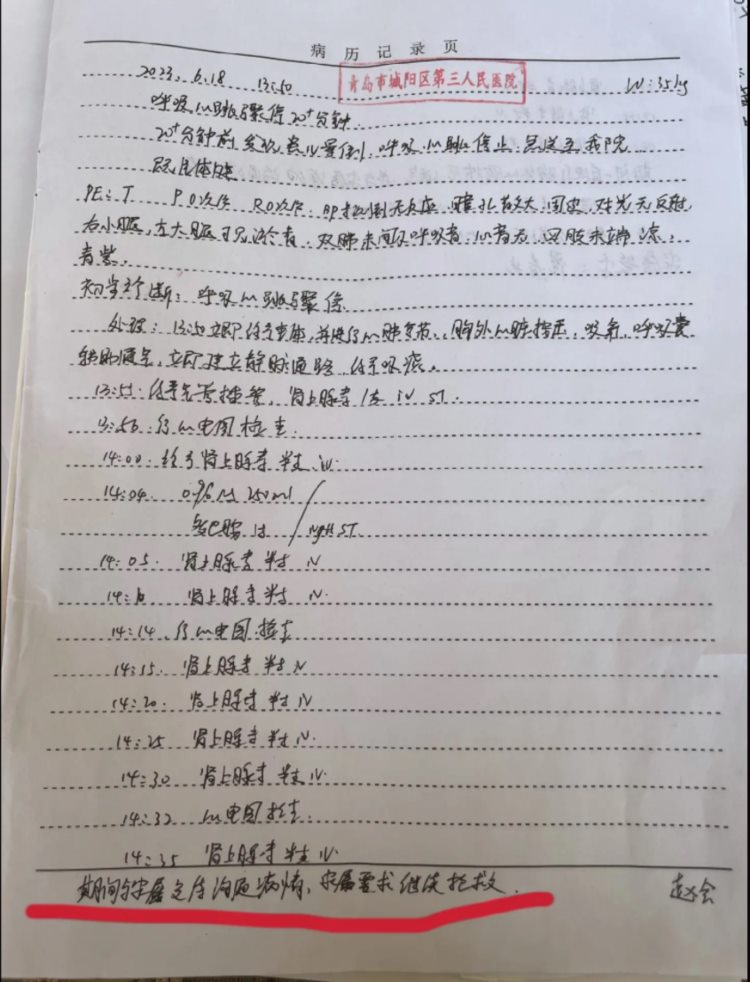 病历记录页
2023.6.18 13:50 青岛市城阳区第三人民医院 W:35kg
呼吸心跳骤停20+分钟.
20+分钟前发现患儿晕倒,呼吸、心跳停止,急送至我院
既往体健
PE:T P0次/分 R0次/分 BP测不到 无反应,瞳孔散大,固定,对光无反射
右小腿,左大腿可见淤青,双肺未闻及呼吸音,心音无,四肢末端凉,
青紫.
初步诊断:呼吸心跳骤停
处理:13:50立即 并进行心肺复苏,胸外心脏按压,吸氧,呼吸囊
辅助通气,立即建立静脉通路,给予吸痰.
13:51.给予气管插管,肾上腺素1支 iv ST.
13:56.行心电图检查.
14:00.给予肾上腺素半支 iv.
14:04. 0.9% NS 250ml
/ ivgtt ST.
14:05. 肾上腺素 半支 iv
14:10 肾上腺素 半支 iv.
14:14.行心电图检查
14:15. 肾上腺素 半支 iv
14:20. 肾上腺素 半支 iv
14:25 肾上腺素 半支 iv.
14:30 肾上腺素 半支 iv.
14:32 心电图检查
14:35 肾上腺素 半支 iv
期间与家属交待沟通病情,家属要求继续抢救. 赵会